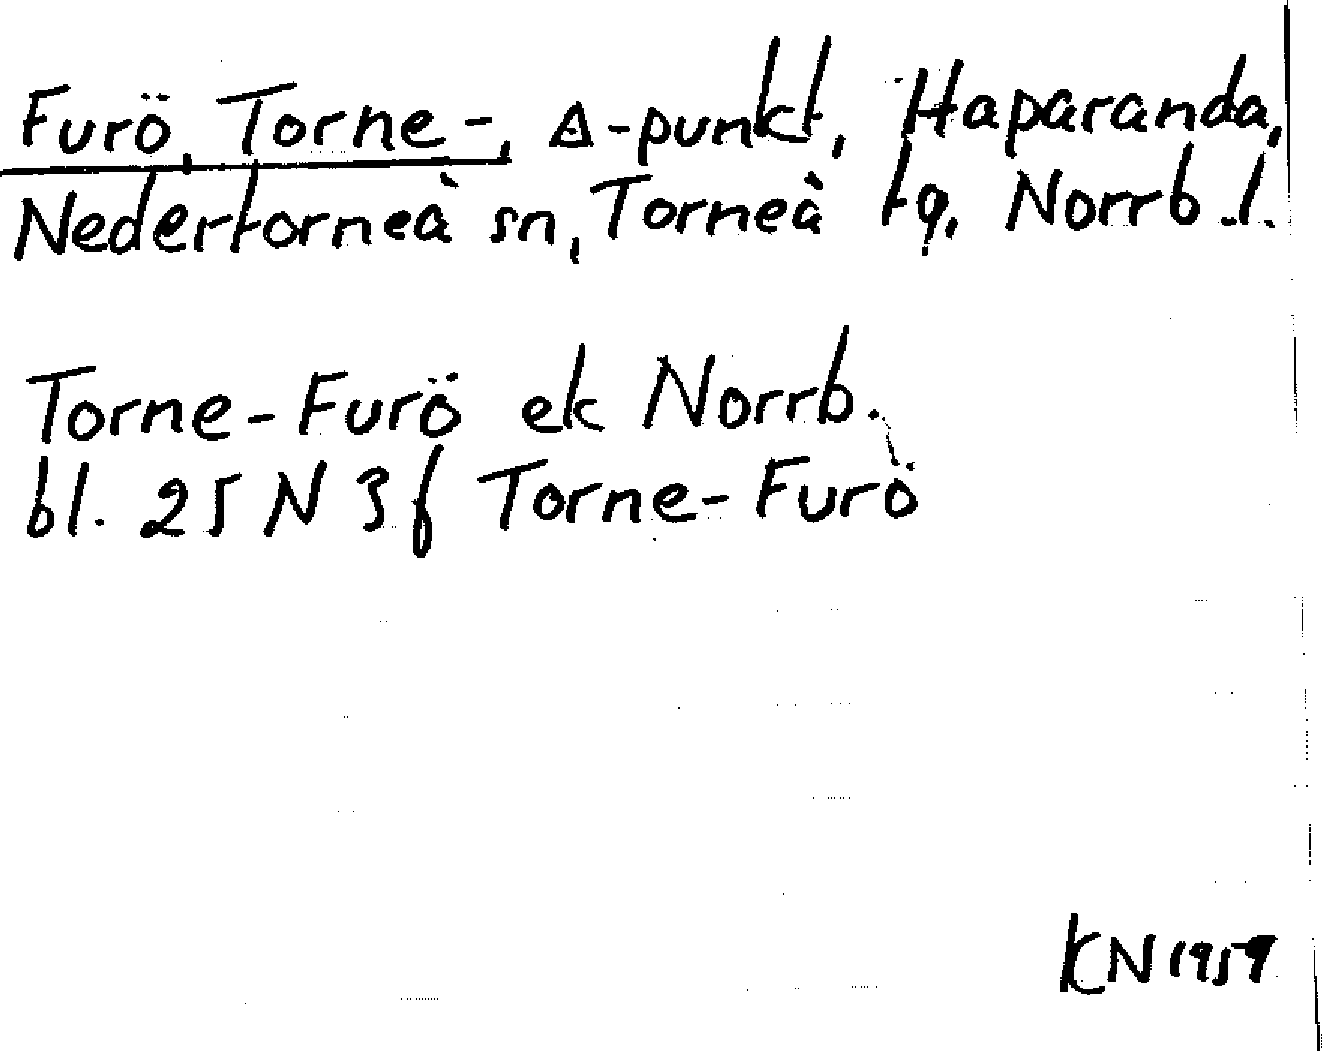 Furö, Torne-, Δ-punkt, Haparanda,
Nedertorneå sn, Torneå tg, Norrb. l.
Torne-Furö ek Norrb.
bl. 25 N 3 f Torne-Furö
KN 1959